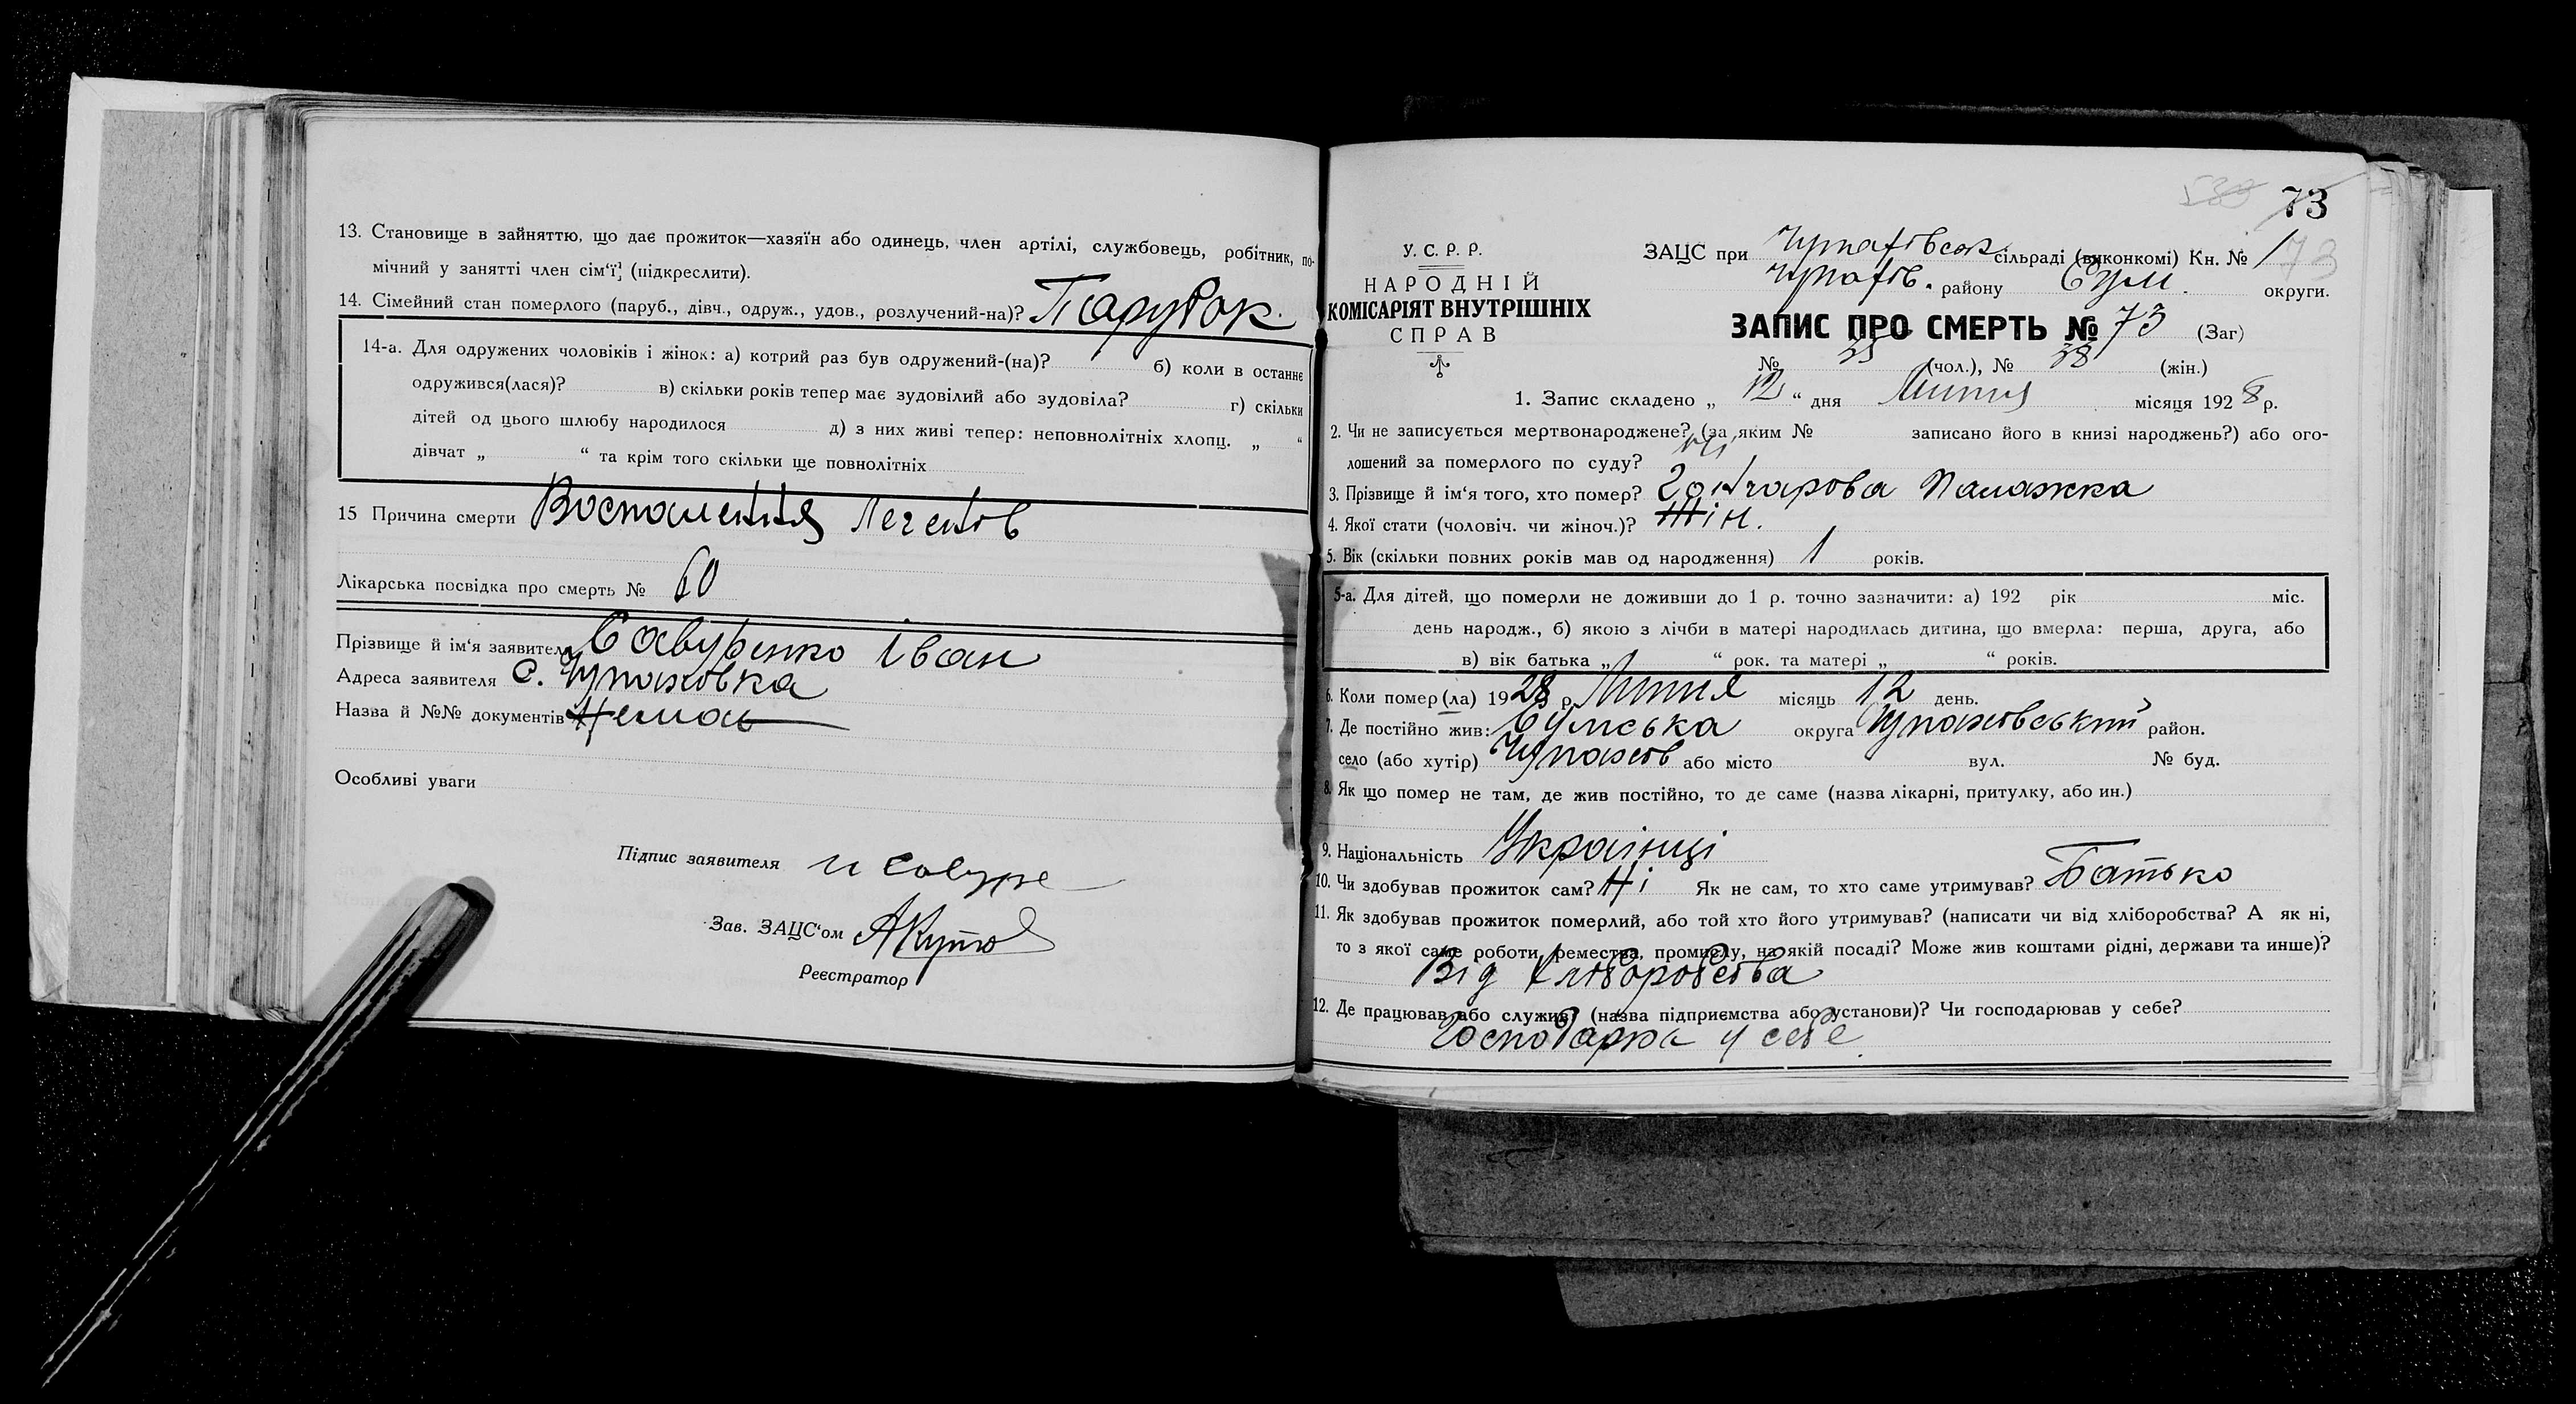 13. Становище в зайняттю, що дає прожиток—хазяїн або одинець, член артілі, службовець, робітник, по-
мічний у занятті член сім'ї (підкреслити).
14. Сімейний стан померлого (паруб., дівч., одруж., удов., розлучений-на)? Парубок.
14-а. Для одружених чоловіків і жінок: а) котрий раз був одружений-(на)? б) коли в останнє
одружився(лася)? в) скільки років тепер має зудовілий або зудовіла? г) скільки
дітей од цього шлюбу народилося д) з них живі тепер: неповнолітніх хлопц. „ “
дівчат „ “ та крім того скільки ще повнолітніх
15 Причина смерти Воспалення Легенів
Лікарська посвідка про смерть № 60
Прізвище й ім'я заявителя Савуренко Іван
Адреса заявителя с. Чупаховка
Назва й №№ документів Немає
Особливі уваги
Підпис заявителя и Савуре
Зав. ЗАЦС'ом
Реєстратор
73
73
У. С. Р. Р.
НАРОДНІЙ
КОМІСАРІЯТ ВНУТРІШНІХ
СПРАВ
ЗАЦС при Чупахівськ сільраді (виконкомі) Кн. № 1
Чупахів. району Сум. округи.
ЗАПИС ПРО СМЕРТЬ № 73 (Заг)
№ 35 (чол.), № 38 (жін.)
1. Запис складено „ 12 “ дня Липня місяця 1928 р.
2. Чи не записується мертвонароджене? (за яким № записано його в книзі народжень?) або ого-
лошений за померлого по суду? Ні
3. Прізвище й ім'я того, хто помер? Гончарова Палажка
4. Якої стати (чоловіч. чи жіноч.)? Жін.
5. Вік (скільки повних років мав од народження) 1 років.
5-а. Для дітей, що померли не доживши до 1 р. точно зазначити: а) 192 рік міс.
день народж., б) якою з лічби в матері народилась дитина, що вмерла: перша, друга, або
в) вік батька „ “ рок. та матері „ “ років.
6. Коли помер (ла) 1928 р. Липня місяць 12 день.
7. Де постійно жив: Сумська округа Чупаховський район.
село (або хутір) Чупахов або місто вул. № буд.
8. Як що помер не там, де жив постійно, то де саме (назва лікарні, притулку, або ин.)
9. Національність Українці
10. Чи здобував прожиток сам? Ні Як не сам, то хто саме утримував? Батько
11. Як здобував прожиток померлий, або той хто його утримував? (написати чи від хліборобства? А як ні,
то з якої саме роботи, ремества, промислу, на якій посаді? Може жив коштами рідні, держави та инше)?
Від хліборобства
12. Де працював або служив? (назва підприємства або установи)? Чи господарював у себе?
Господарка у себе